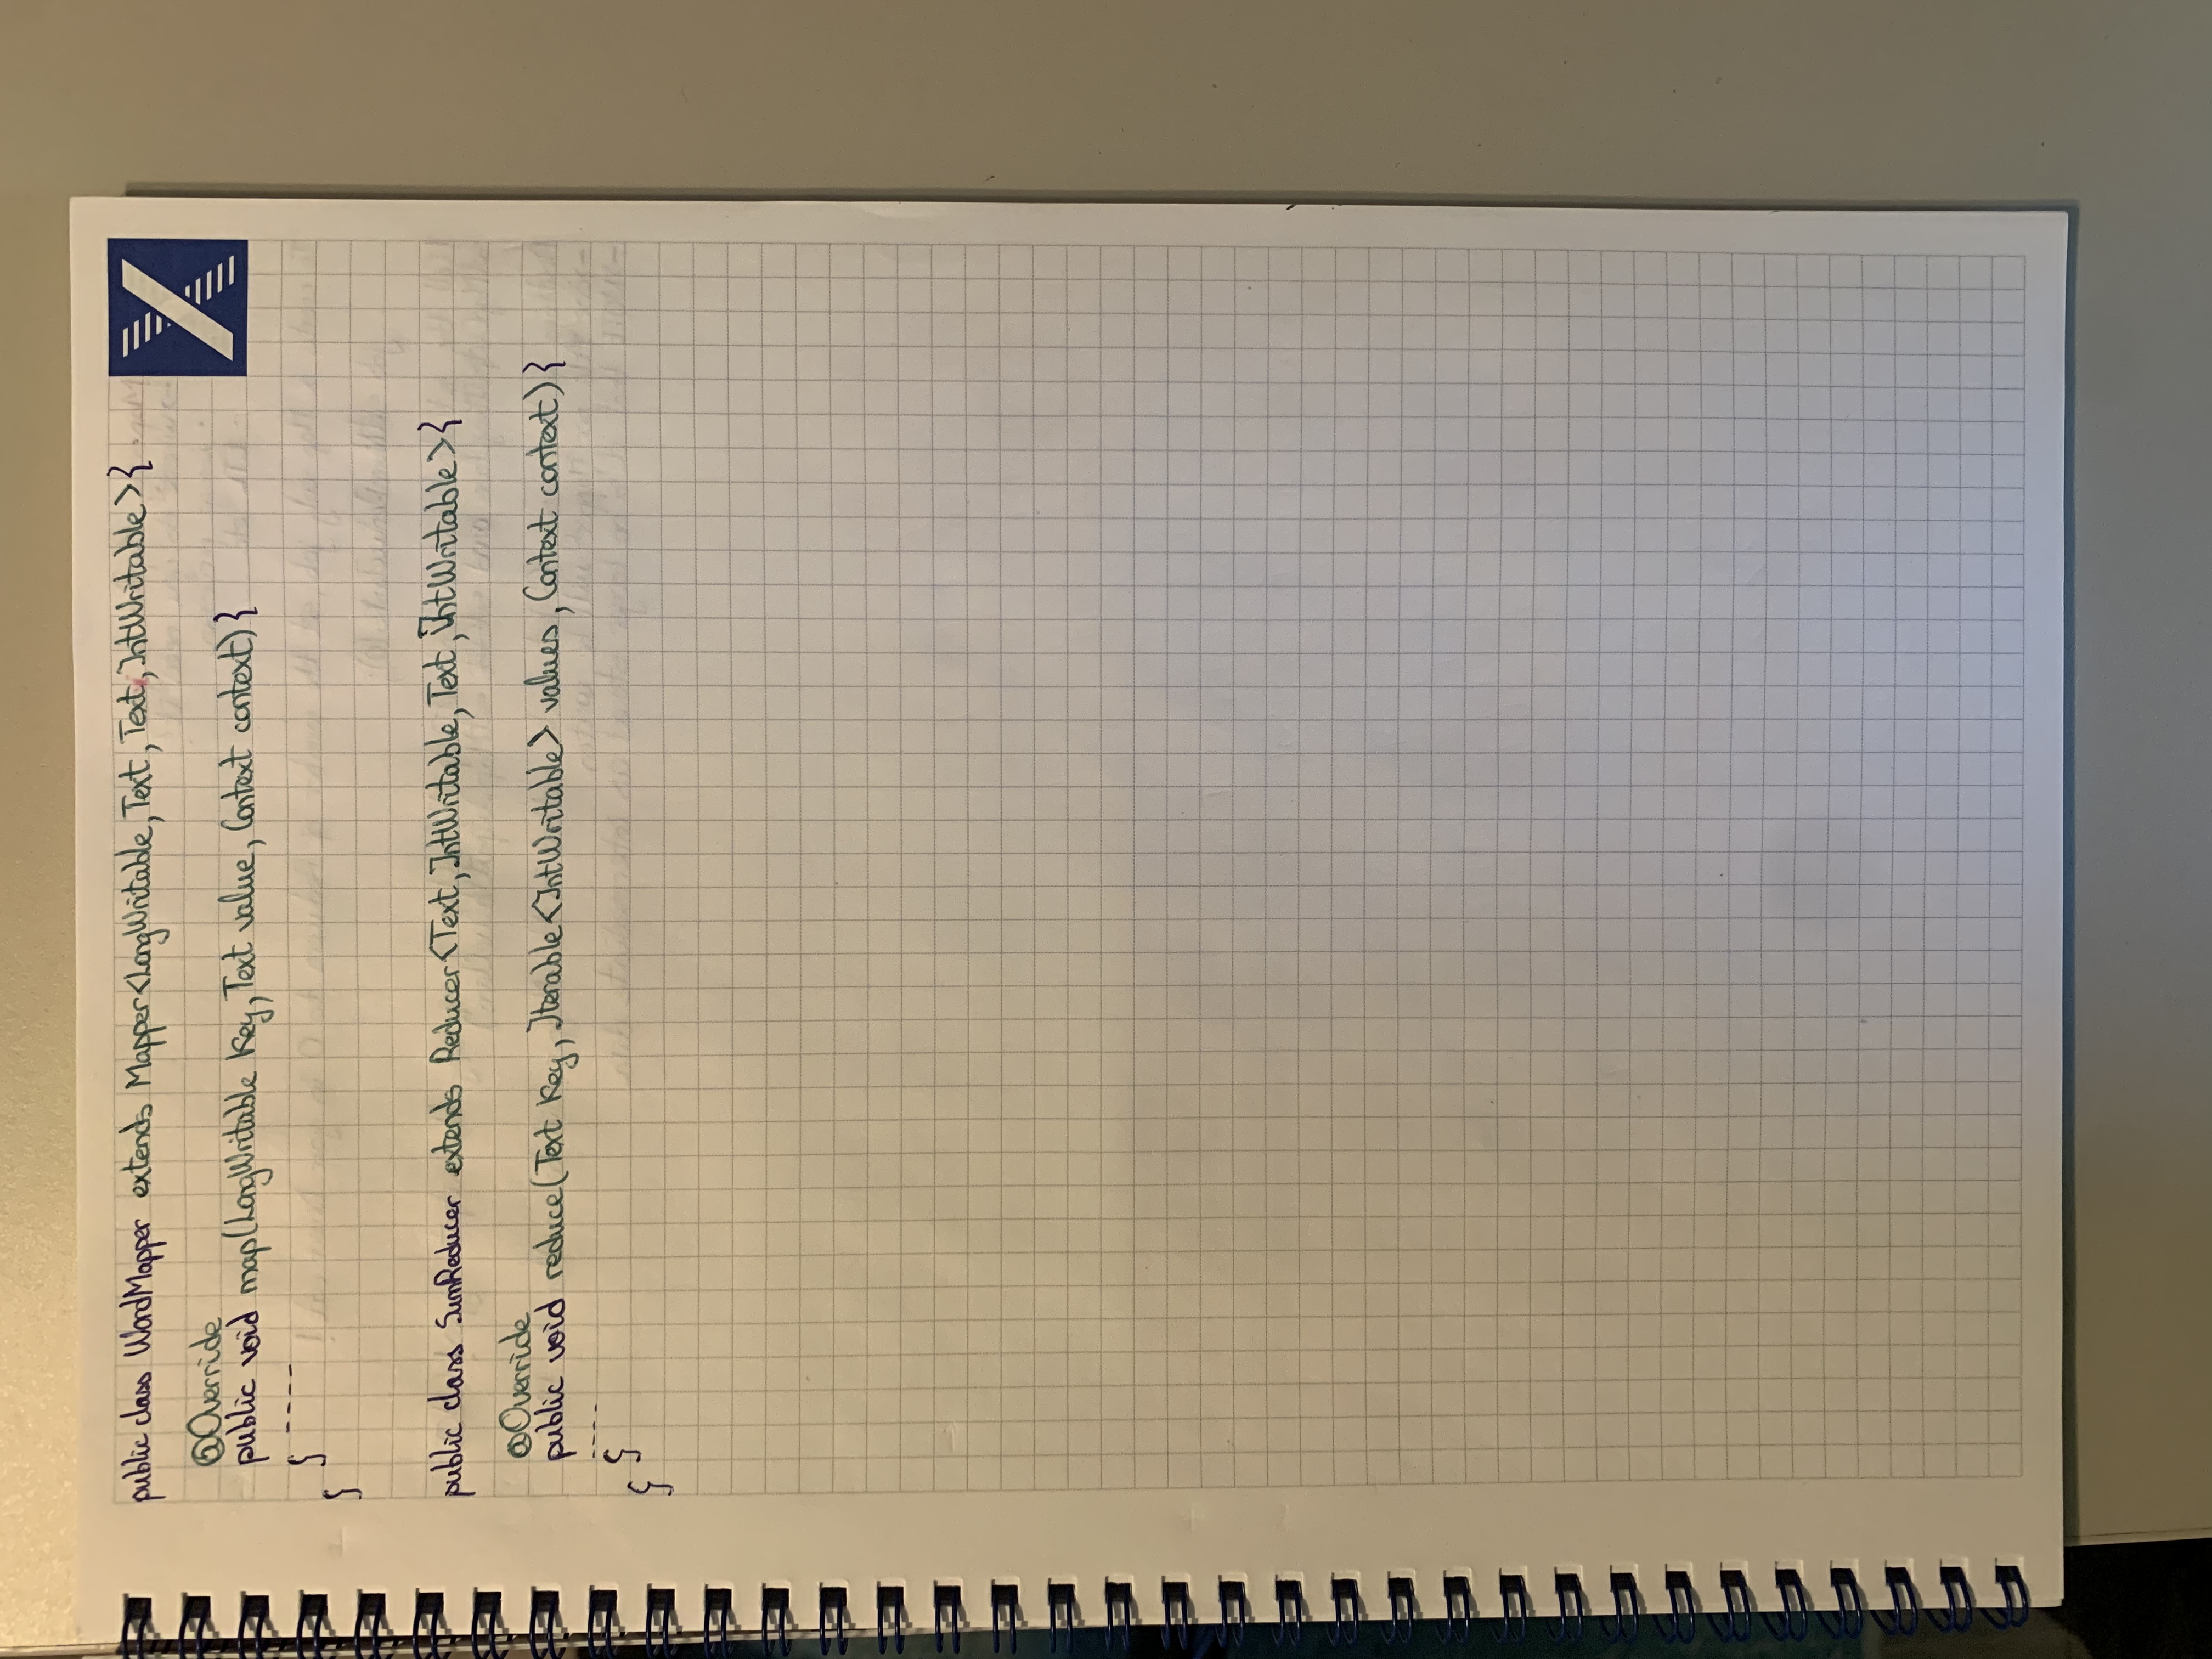 public class WordMapper extends Mapper<LongWritable, Text, Text, IntWritable>{
@Override
public void map(LongWritable Key, Text value, Context context){
-----
}
}
public class SumReducer extends Reducer<Text, IntWritable, Text, IntWritable>{
@Override
public void reduce(Text Key, Iterable<IntWritable> values, Context context){
----
}
}